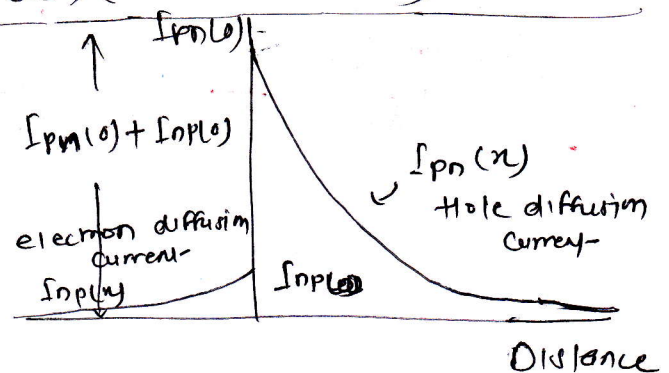 Ipn(0)
Ipn(0) + Inp(0)
Ipn(x)
Hole diffusion
current
electron diffusion
current
Inp(x)
Inp
Distance